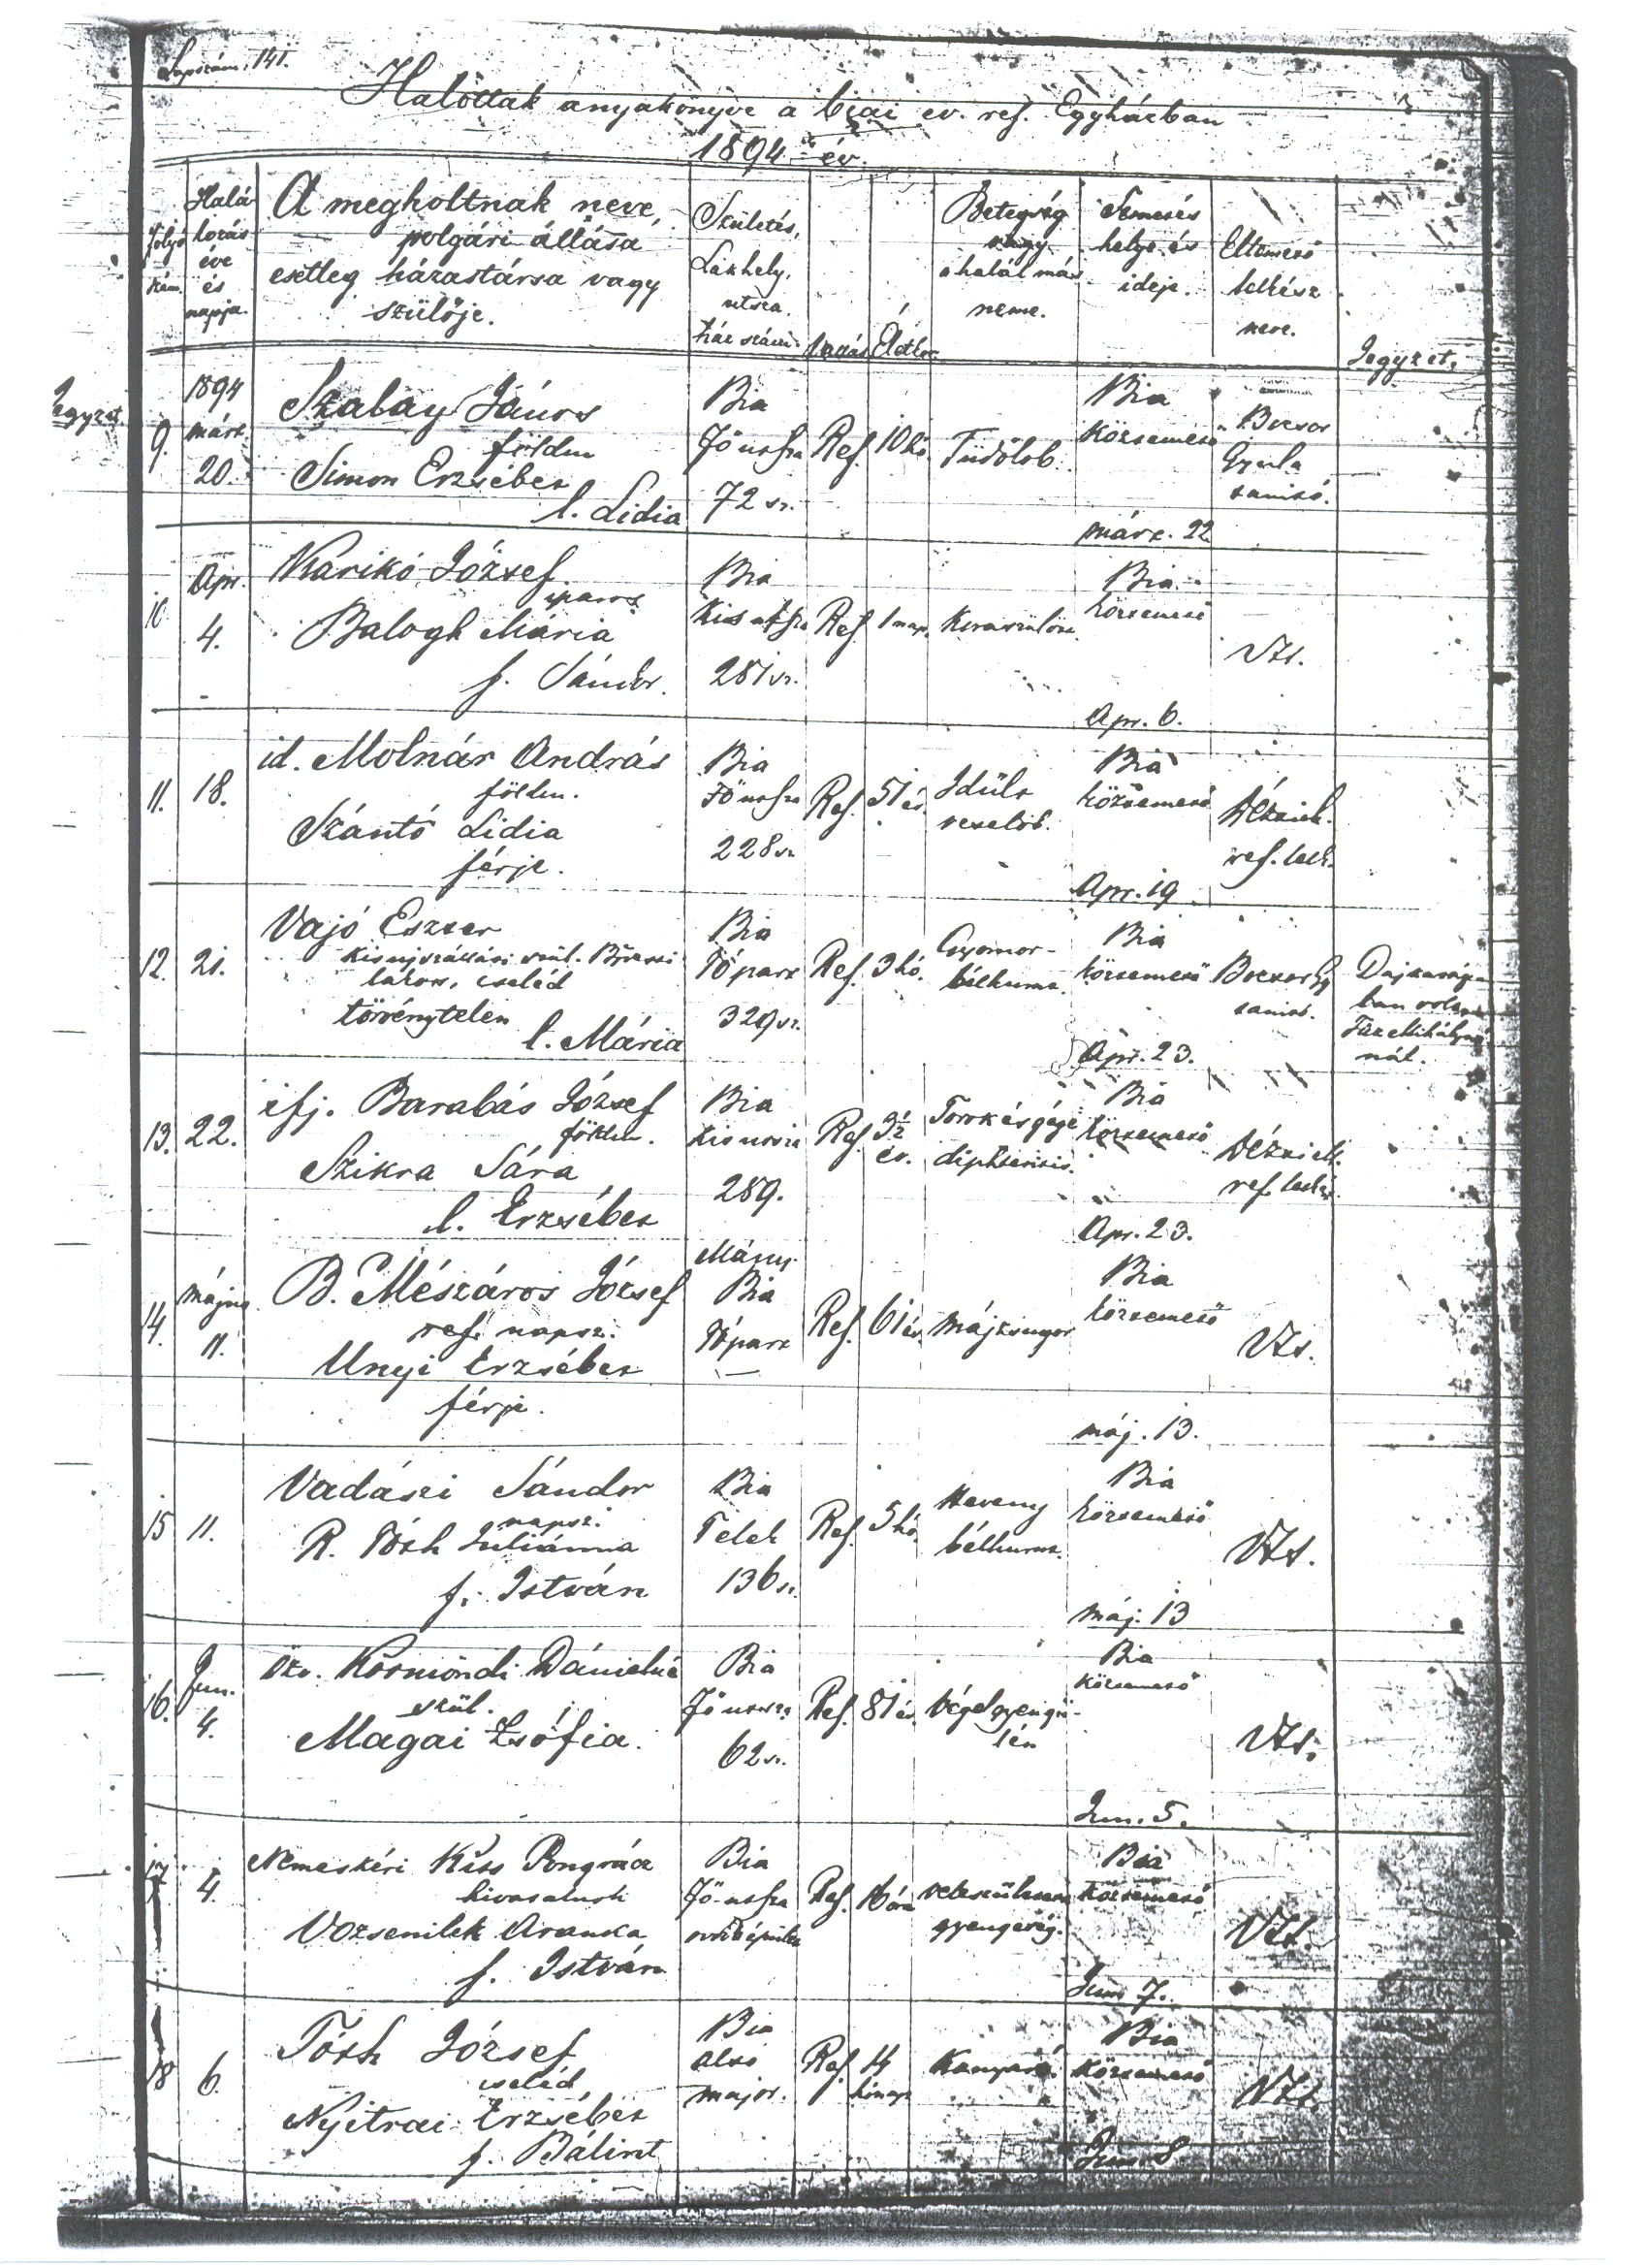 Lapszám. 141.
Halottak anyakönyve a biai ev. ref. Egyházban
1894 ik év.
Folyó szám.
Halálozás éve és napja.
A megholtnak neve,
polgári állása
esetleg házastársa vagy
szülője.
Születés,
Lakhely,
utsza,
ház szám.
Vallás
Életkor
Betegség
vagy
a halál más
neme.
Temetés
helye és
ideje.
Eltemető
lelkész
neve.
Jegyzet.
9.
1894
márz.
20.
Szalay János
földm
Simon Erzsébet
l. Lidia
Bia
Fő utsza
72 sz.
Ref.
10 hó
Tüdőlob.
Bia
köztemető
márz. 22
Bocsor
Gyula
tanító.
10
Apr.
4.
Karikó József
iparos
Balogh Mária
f. Sándor.
Bia
Kis utsza
281 sz.
Ref.
1 nap.
Koraszülött
Bia
köztemető
Apr. 6.
Usz.
11.
18.
id. Molnár András
földm.
Szántó Lidia
férje.
Bia
Fő utsza
228 sz
Ref.
51 év
Idült
veselob.
Bia
köztemető
Apr. 19
ref. lelk.
12.
21.
Vajó Eszter
kisujszállási szül.
lakos, cseléd
törvénytelen
l. Mária
Bia
Tópart
329 sz.
Ref.
3 hó.
Gyomor-
bélhurut.
Bia
köztemető
Apr. 23.
Bocsor Gy
tanító.
Dajkaság-
ban volt
Mihályné
nál.
13.
22.
ifj. Barabás József
földm.
Szikra Sára
l. Erzsébet
Bia
Kis utsza
289.
Ref
3½
év.
Torok és gége
diphteritis.
Bia
köztemető
Apr. 23.
ref. lelkész
14.
május
11.
B. Mészáros József
ref. napsz.
Unyi Erzsébet
férje.
Mány.
Bia
Tópart
—
Ref.
61 év
májzsugor
Bia
köztemető
máj. 13.
Usz.
15
11.
Vadászi Sándor
napsz.
R. Tóth Juliánna
f. István
Bia
Telek
136 sz.
Ref.
5 hó.
Heveny
bélhurut.
Bia
köztemető
máj. 13
Usz.
16.
Jun.
4.
özv. Körmöndi Dánielné
szül.
Magai Zsófia.
Bia
Fő utsza
62 sz.
Ref.
81 év
végelgyengü-
lés
Bia
köztemető
Jun. 5.
Usz.
17
4.
Nemeskéri Kiss Pongrácz
hivatalnok
Vozsenilek Aranka
f. István
Bia
Fő utsza
Ref.
16 óra
veleszületett
gyengeség.
Bia
köztemető
Jun 7.
Usz.
18
6.
Tóth József
cseléd
Nyitrai Erzsébet
f. Bálint
Bia
alsó
major.
Ref.
14
hónap
Kanyaró.
Bia
köztemető
Jun. 8
Usz.